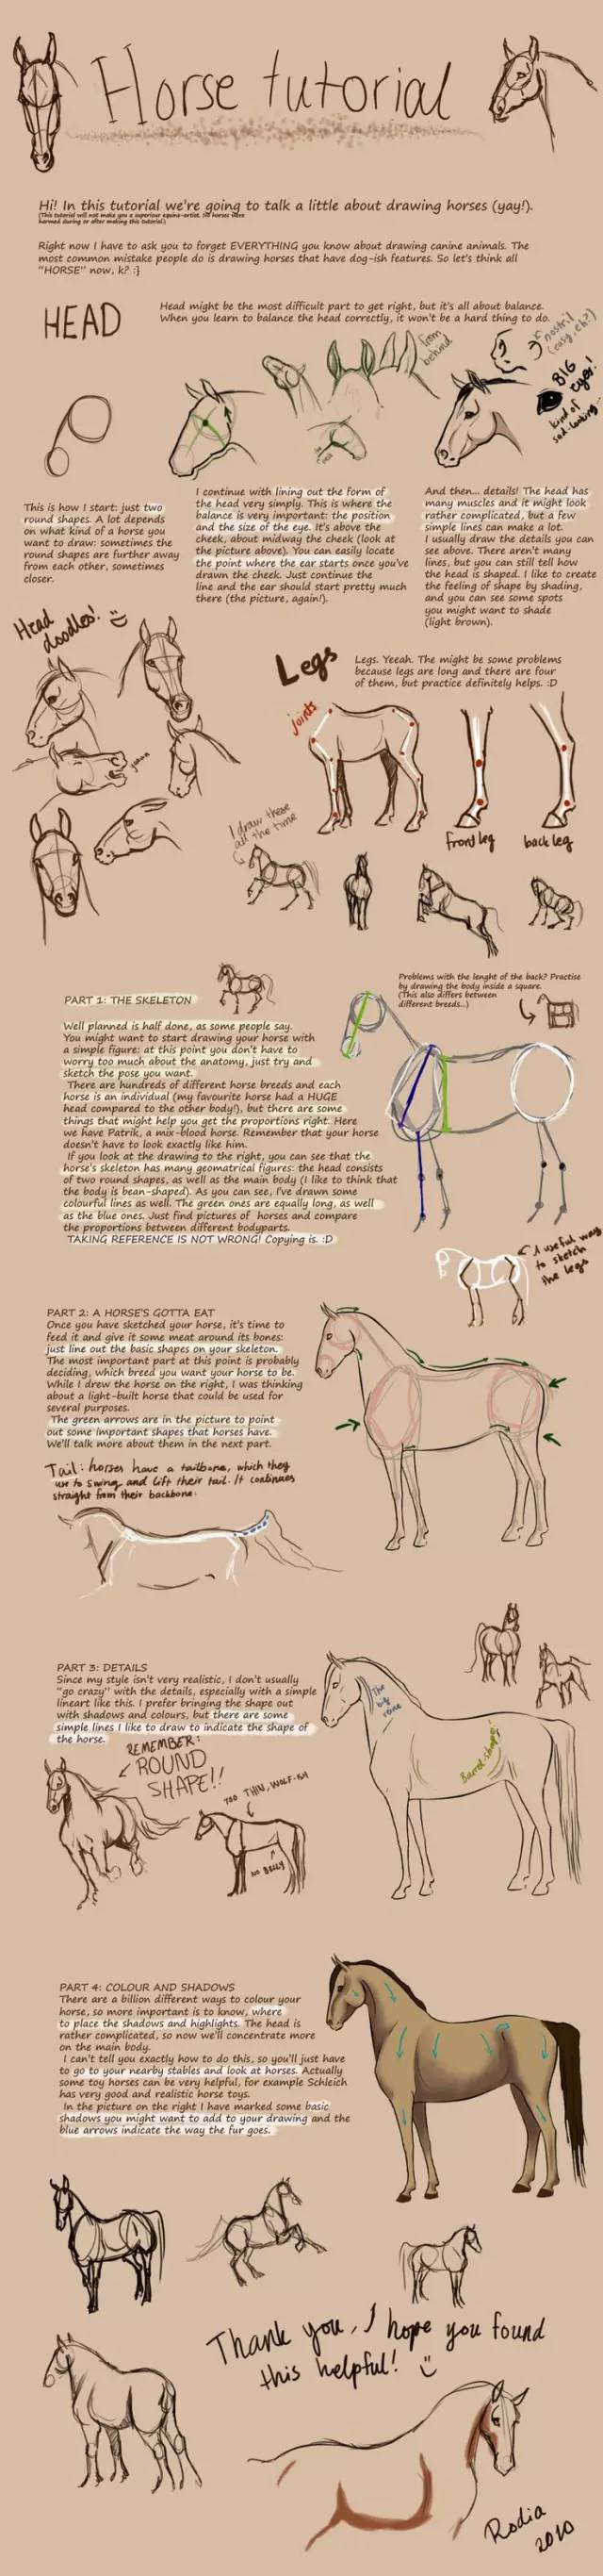 Horse tutorial
Hi! In this tutorial we're going to talk a little about drawing horses (yay!).
(This tutorial will not make you a superiour equine-artist. No horses were
harmed during or after making this tutorial)
Right now I have to ask you to forget EVERYTHING you know about drawing canine animals. The
most common mistake people do is drawing horses that have dog-ish features. So let's think all
"HORSE" now, k? :}
HEAD
Head might be the most difficult part to get right, but it's all about balance.
When you learn to balance the head correctly, it won't be a hard thing to do.
from
behind
nostril
(easy, eh?)
BIG
eyes!
kind of
sad-looking
This is how I start: just two
round shapes. A lot depends
on what kind of a horse you
want to draw: sometimes the
round shapes are further away
from each other, sometimes
closer.
I continue with lining out the form of
the head very simply. This is where the
balance is very important: the position
and the size of the eye. It's above the
cheek, about midway the cheek (look at
the picture above). You can easily locate
the point where the ear starts once you've
drawn the cheek. Just continue the
line and the ear should start pretty much
there (the picture, again!).
And then... details! The head has
many muscles and it might look
rather complicated, but a few
simple lines can make a lot.
I usually draw the details you can
see above. There aren't many
lines, but you can still tell how
the head is shaped. I like to create
the feeling of shape by shading,
and you can see some spots
you might want to shade
(light brown).
Head
doodles! :)
Legs
Legs. Yeeah. The might be some problems
because legs are long and there are four
of them, but practice definitely helps. :D
joints
front leg
back leg
I draw these
all the time
PART 1: THE SKELETON
Problems with the lenght of the back? Practise
by drawing the body inside a square.
(This also differs between
different breeds...)
Well planned is half done, as some people say.
You might want to start drawing your horse with
a simple figure: at this point you don't have to
worry too much about the anatomy, just try and
sketch the pose you want.
There are hundreds of different horse breeds and each
horse is an individual (my favourite horse had a HUGE
head compared to the other body!), but there are some
things that might help you get the proportions right. Here
we have Patrik, a mix-blood horse. Remember that your horse
doesn't have to look exactly like him.
If you look at the drawing to the right, you can see that the
horse's skeleton has many geomatrical figures: the head consists
of two round shapes, as well as the main body (I like to think that
the body is bean-shaped). As you can see, I've drawn some
colourful lines as well. The green ones are equally long, as well
as the blue ones. Just find pictures of horses and compare
the proportions between different bodyparts.
TAKING REFERENCE IS NOT WRONG! Copying is. :D
A useful way
to sketch
the legs
PART 2: A HORSE'S GOTTA EAT
Once you have sketched your horse, it's time to
feed it and give it some meat around its bones:
just line out the basic shapes on your skeleton.
The most important part at this point is probably
deciding, which breed you want your horse to be.
While I drew the horse on the right, I was thinking
about a light-built horse that could be used for
several purposes.
The green arrows are in the picture to point
out some important shapes that horses have.
We'll talk more about them in the next part.
Tail: horses have a tailbone, which they
use to swing and lift their tail. It continues
straight from their backbone.
PART 3: DETAILS
Since my style isn't very realistic, I don't usually
"go crazy" with the details, especially with a simple
lineart like this. I prefer bringing the shape out
with shadows and colours, but there are some
simple lines I like to draw to indicate the shape of
the horse.
REMEMBER:
ROUND
SHAPE!!
TOO THIN, WOLF-ISH
NO BELLY
The
big
vein
Barrel-shape!
PART 4: COLOUR AND SHADOWS
There are a billion different ways to colour your
horse, so more important is to know, where
to place the shadows and highlights. The head is
rather complicated, so now we'll concentrate more
on the main body.
I can't tell you exactly how to do this, so you'll just have
to go to your nearby stables and look at horses. Actually
some toy horses can be very helpful, for example Schleich
has very good and realistic horse toys.
In the picture on the right I have marked some basic
shadows you might want to add to your drawing and the
blue arrows indicate the way the fur goes.
Thank you, I hope you found
this helpful! :)
Rodia
2010